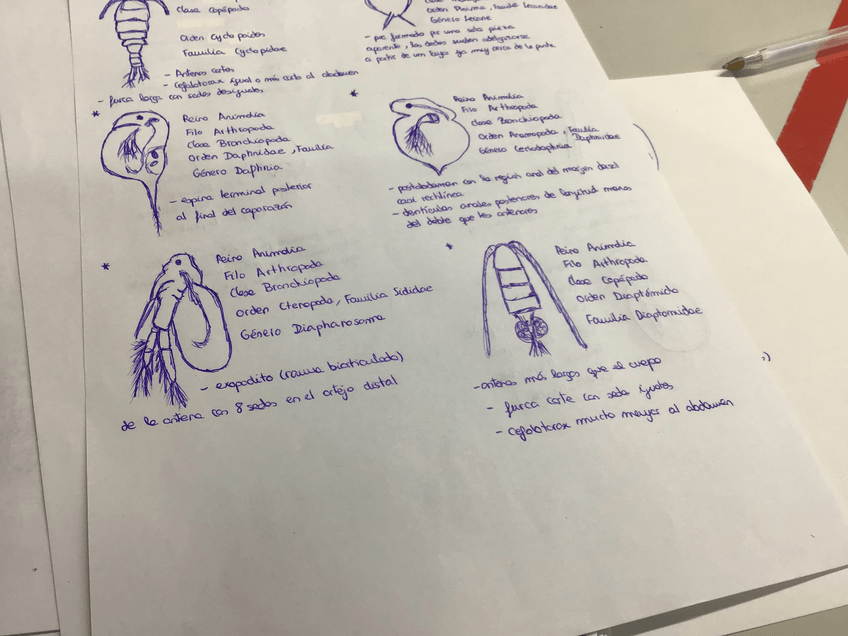 Clase Copépodo
Orden Cyclopoides
Familia Cyclopidae
- Antenas cortas
- Cefalotorax igual o más corto al abdomen
- furca larga con sedas desiguales
Orden Ploima, Familia Lecanidae
Género Lecane
- pie formado por una sola pieza
aparente, los dedos suelen adelgazarse
a partir de un lugar ya muy cerca de la punta
* Reino Animalia
Filo Arthropoda
Clase Branchiopoda
Orden Daphnidae, Familia
Género Daphnia
- espina terminal posterior
al final del caparazón
* Reino Animalia
Filo Arthropoda
Clase Branchiopoda
Orden Anomopoda, Familia
Daphnidae
Género Ceriodaphnia
- postabdomen con la región anal del margen dorsal
casi rectilínea
- dentículos anales posteriores de longitud menos
del doble que los anteriores
* Reino Animalia
Filo Arthropoda
Clase Branchiopoda
Orden Ctenopoda, Familia Sididae
Género Diaphanosoma
- exopodito (rama biarticulada)
de la antena con 8 sedas en el artejo distal
* Reino Animalia
Filo Arthropoda
Clase Copépodo
Orden Diaptómido
Familia Diaptomidae
- antenas más largas que el cuerpo
- furca corta con seda iguales
- Cefalotorax mucho mayor al abdomen